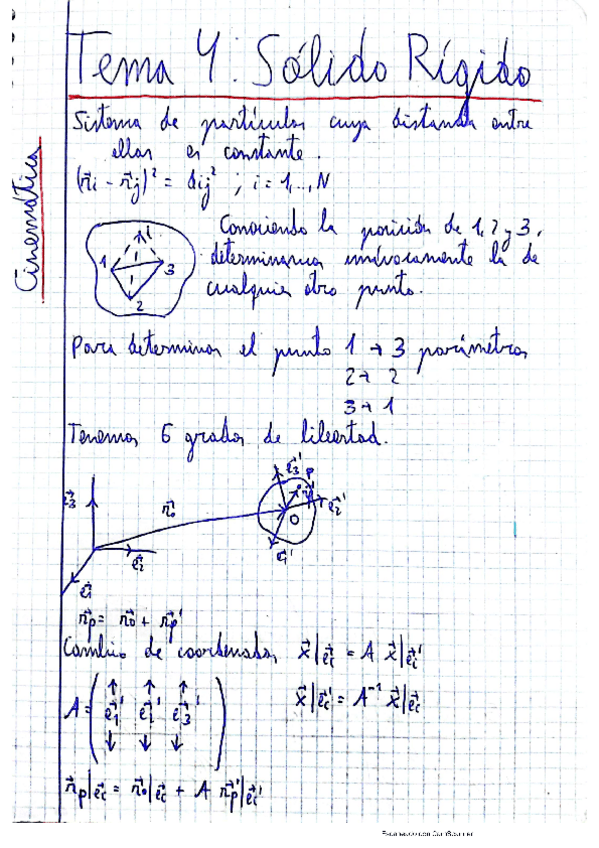 Tema 4: Sólido Rígido
Cinemática
Sistema de partículas cuya distancia entre
ellas es constante.
(r⃗i - r⃗j)² = dij² ; i = 1,..., N
Conociendo la posición de 1, 2 y 3,
determinamos unívocamente la de
cualquier otro punto.
1 i 3
2
Para determinar el punto 1 → 3 parámetros
2 → 2
3 → 1
Tenemos 6 grados de libertad.
e⃗3 r⃗0 e⃗3' P r⃗p' e⃗2'
O
e⃗2 e⃗1'
e⃗1
r⃗p = r⃗0 + r⃗p'
Cambio de coordenadas x⃗|e⃗i = A x⃗|e⃗i'
A = ( e⃗1' e⃗2' e⃗3' ) x⃗|e⃗i' = A⁻¹ x⃗|e⃗i
r⃗p|e⃗i = r⃗0|e⃗i + A r⃗p'|e⃗i'
Escaneado con CamScanner